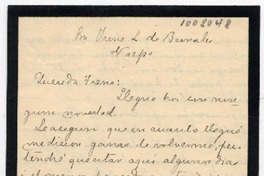 1002048
Irene L. de Bernales
Querida Irene:
Llegué hoi sin nin
guna novedad.
Le aseguro que en cuanto llegué
me dieron ganas de volverme, pe
tendré que estar aquí algunos dias